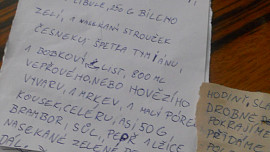 CIBULE, 250 G BÍLÉHO
ZELÍ, 1 NASEKANÝ STROUŽEK
ČESNEKU, ŠPETKA TYMIÁNU,
1 BOBKOVÝ LIST, 800 ML
VEPŘOVÉHO NEBO HOVĚZÍHO
VÝVARU, 1 MRKEV, 1 MALÝ PÓREK
KOUSEK CELERU, ASI 50 G
BRAMBOR, SŮL, PEPŘ 1 LŽÍCE
NASEKANÉ ZELENÉ
HODINÍ, SL
DROBNÉ
POKRÁJÍME
PŘIDÁME